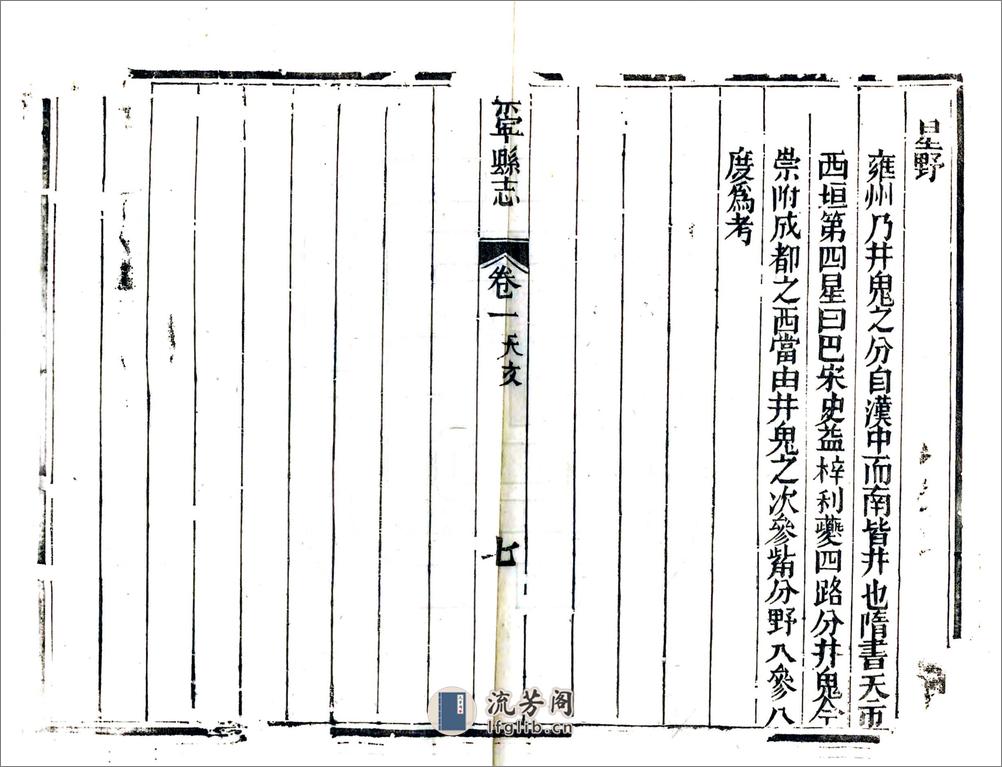 星野
雍州乃井鬼之分自漢中而南皆井也隋書天市
西垣第四星曰巴宋史益梓利夔四路分井鬼今
崇附成都之西當由井鬼之次參觜分野入參八
度為考
寧縣志
卷一
天文
七
流芳阁
lfglib.cn